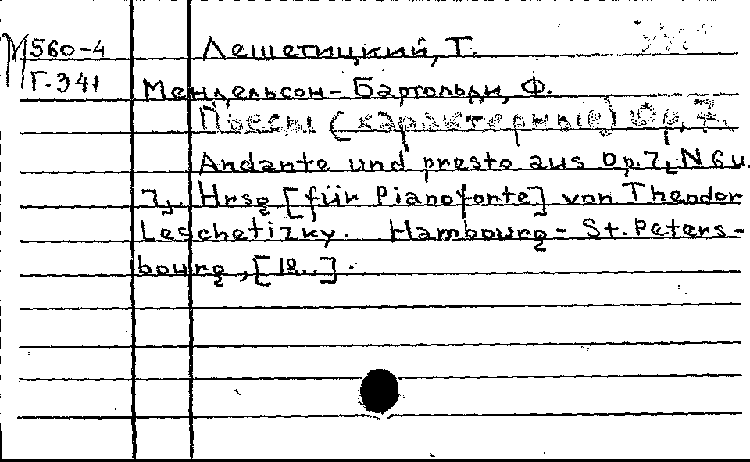 М560-4 Лешетицкий, Т.
Г-341 Мендельсон-Бартольди, Ф.
Пьесы (характерные) Op. 7.
Andante und presto aus Op. 7, N 6 u.
7. Hrsg [für Pianoforte] von Theodor
Leschetizky. Hambourg - St. Peters-
bourg, [18..].